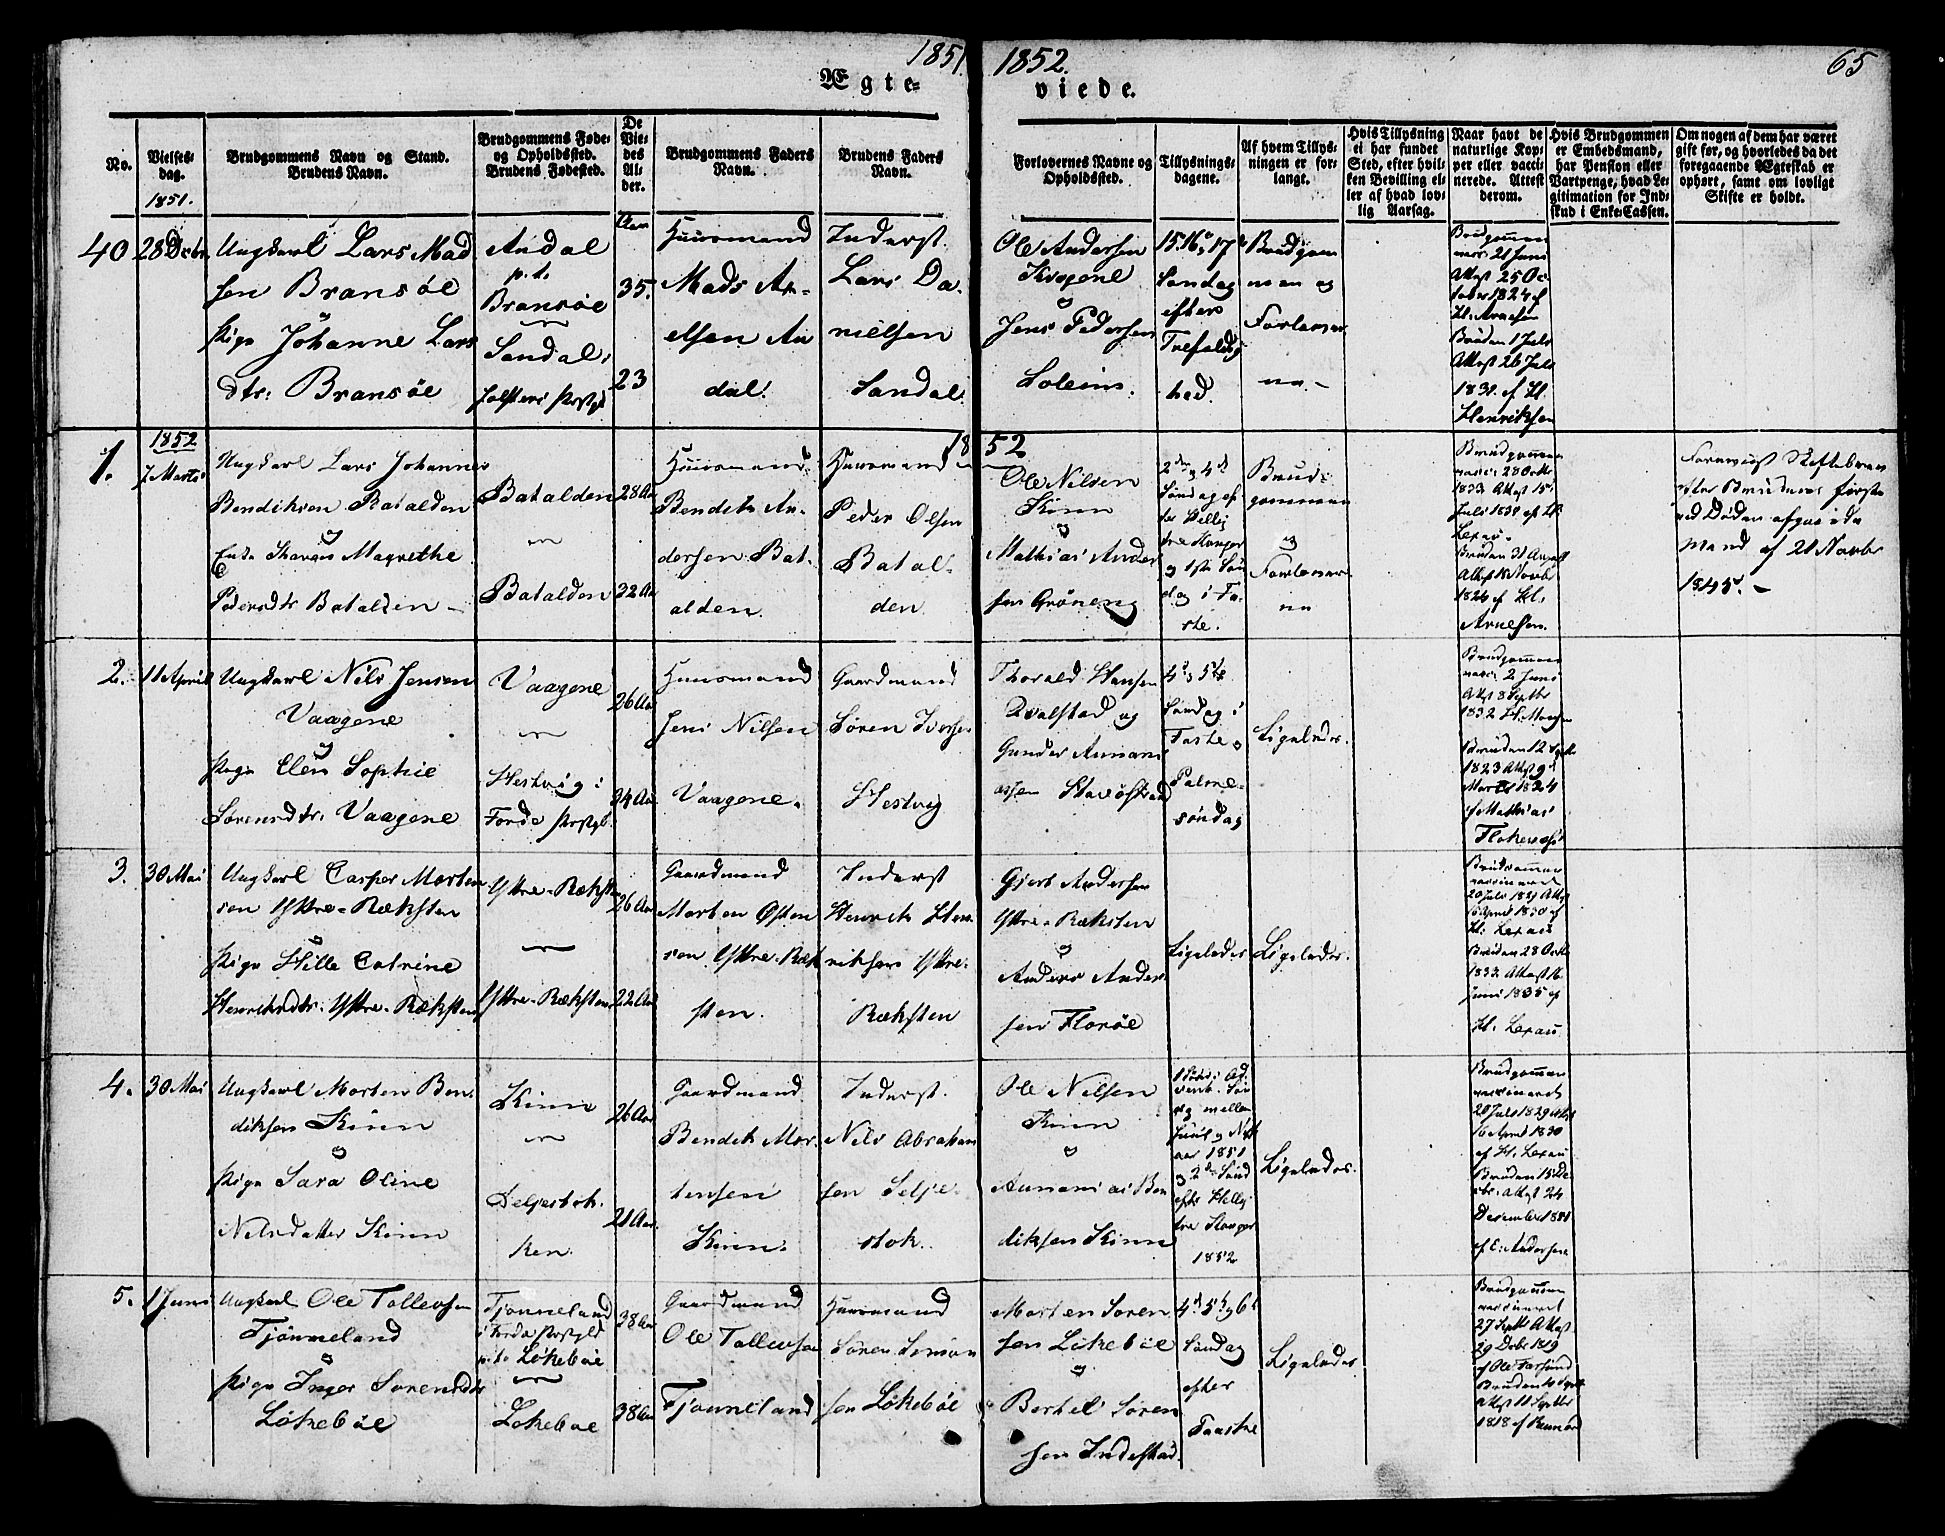 1851.
Ægte-
1852.
viede.
65
No.
Vielses-
dag.
1851.
Brudgommens Navn og Stand.
Brudens Navn.
Brudgommens Føde-
og Opholdssted.
Brudens Fødested.
De
Vie-
des
Al-
der.
Brudgommens Faders
Navn.
Brudens Faders
Navn.
Forlovernes Navne og
Opholdssted.
Tillysnings-
dagene.
Af hvem Tillys-
ningen er for-
langt.
Hvis Tillysning
ei har fundet
Sted, efter hvil-
ken Bevilling el-
ler af hvad lov-
lig Aarsag.
Naar havt de
naturlige Kop-
per eller vacci-
nerede. Attest
derom.
Hvis Brudgommen
er Embedsmand,
har Pension eller
Vartpenge, hvad Le-
gitimation for Ind-
skud i Enke-Cassen.
Om nogen af dem har været
gift før, og hvorledes da det
foregaaende Ægteskab er
ophørt, samt om lovligt
Skifte er holdt.
40
28 Debr
Ungkarl Lars Mad
sen Bransøe
Pige Johanne Lars
dtr: Bransøe
Andal
p.t.
Bransøe
Sandal
Jølsters Prstgl
Aar
35.
23
Huusmand
Mads An-
elsen An
dal.
Inderst.
Lars Da-
nielsen
Sandal.
Ole Andersen
og
Jens Pedersen
Soleim.
15. 16 og 17
Søndag
efter
Trefoldig
hed.
Brudgom
men og
Forlover
ne.-
Brudgommen
21 Juni
Attest 25 Oc
tober 1824 af
Kl. Arnesen
Bruden 1 Juli
Attest 26 Juli
1831. af Kl.
Henriksen
1852
1.
1852
7 Marts
Ungkarl Lars Johannes
Bendiksen Batalden
og
Enke Magrethe
Pedersdtr Batalden -
Batalden
Batalden
28 Aar
32 Aar
Huusmand
Bendik An-
dersen Bat-
alden.
Huusmand
Peder Olsen
Batal-
den.
Ole Nilsen
Kinn
og
Mathias Ander
sen Grøneng
2den og 4de
Søndag ef
ter Hellig
tre Konger
og 1ste Søn
dag i Fa-
ste.
Brud-
gommen
og
Forlover-
ne
Brudgommen
28 Octbr
1833 Attest 15
Juli 1838 af Kl.
Lexau.
Bruden 31 August
Attest 18 Novbr
1826 af Kl.
Arnesen.
Forevist Skiftebrev
efter Brudens første
ved Døden afgaaede
Mand af 21 Novbr
1845. -
2.
11 April
Ungkarl Nils Jensen
Vaagene
og
Pige Elen Sophie
Sørensdtr. Vaagene
Vaagene
Hestvig i
Førde Prstgl.
26 Aar
34 Aar
Huusmand
Jens Nilsen
Vaagene.
Gaardmand
Søren Iversen
Hestvig
Thorald Hansen
Qvalstad og
Gunder Anani
assen Stavøstrand
4de og 5te
Søndag i
Faste og
Palme-
søndag
Ligeledes.
Brudgommen
vacc: 2 Juni
Attest 8 Septbr
1832 H. Moe
Bruden 12 Septbr
1823 Attest 9
Marts 1824
af Mathias
Flokenæs
3.
30 Mai
Ungkarl Casper Morten
sen Yttre-Ræksten
og
Pige Hille Catrine
Henriksdtr. Yttre-Ræksten
Yttre-Ræksten
Yttre-Ræksten
26 Aar
22 Aar
Gaardmand
Morten Østen
sen Yttre-Ræk
sten.
Inderst
Henrik Hen
riksen Yttre-
Ræksten
Gjert Andersen
Yttre-Ræksten
og
Anders Ander
sen Florøe
Ligeledes
Ligeledes.
Brudgommen
vaccineret
20 Juli 1829 Attest
16 April 1830 af
Kl. Lexau
Bruden 28 Octbr
1833 Attest 16
Juni 1835 af
Kl. Lexau
4.
30 Mai
Ungkarl Morten Ben
diksen Kinn
og
Pige Sara Oline
Nilsdatter Kinn
Kinn
Seljestok-
ken.
26 Aar
21 Aar.
Gaardmand
Bendik Mor-
tensen
Kinn.
Inderst.
Nils Abraham
sen Selje-
stok.
Ole Nilsen
Kinn
og
Ananias Ben
diksen Kinn
1 Sønd: i Ad
vent. Søn
dag mellem
Juul og Nyt
aar 1851
og 2den Sønd
efter Hellig
tre Konger
1852
Ligeledes.
Brudgommen
vaccineret
20 Juli 1829 Attest
16 April 1830
af Kl. Lexau
Bruden 15 De
cbr. Attest 24
December 1831
af E: Andersen
5.
1 Juni
Ungkarl Ole Tollevsen
Tjønneland
og
Pige Inger Sørensdtr
Løkebøe
Tjønneland
i Førde Prstgld
p.t. Løkebøe
Løkebøe
38 Aar
38 Aar
Gaardmand
Ole Tollevsen
Tjønneland
Huusmand
Søren Simon
sen Løkebøe
Morten Søren
sen Løkebøe
og
Bertel Søren
sen Indrestad.
4de 5te og 6te
Søndag
efter
Paaske
Ligeledes
Brudgommen
vaccineret
27 Septb Attest
29 Decbr 1819
af Ole Farsund
Bruden
Attest 11 Septbr
1818 af